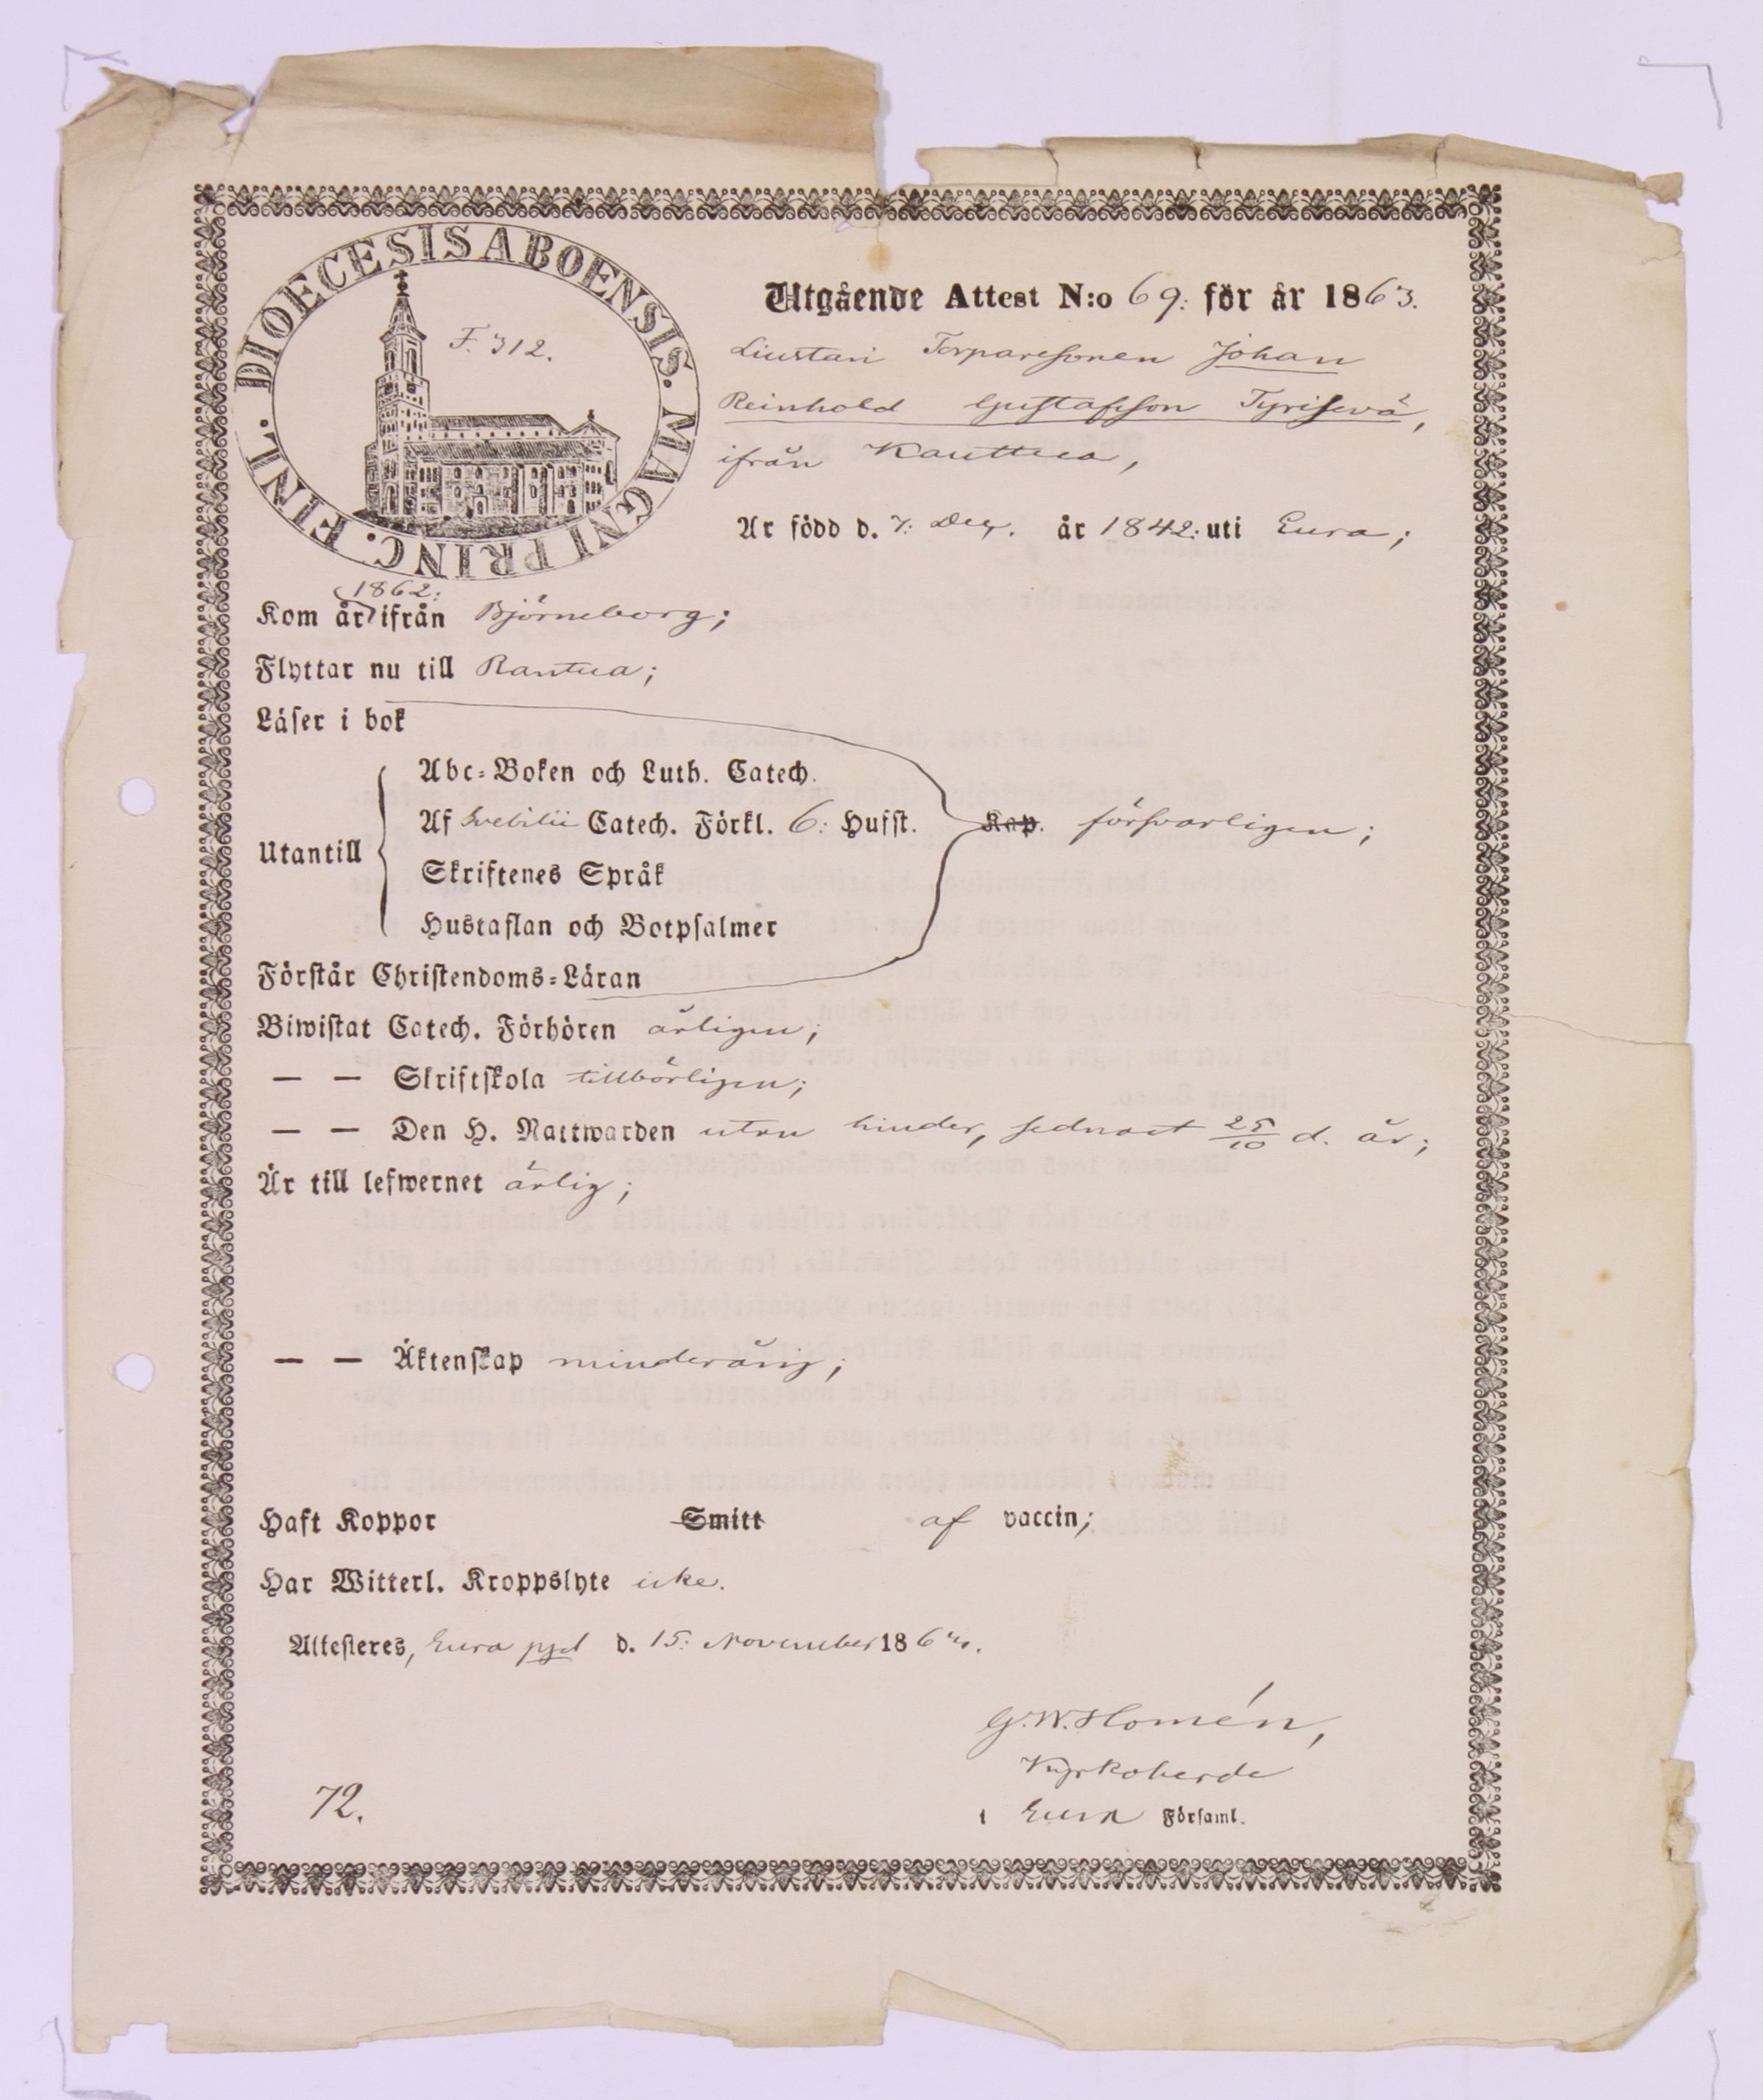 DIOECESIS ABOENSIS. MAGNI PRINC. FINL.
F. 312.
Utgående Attest N:o 69: för år 1863.
Torparesonen Johan
Reinhold Gustafsson
ifrån Kauttua,
Är född d. 7: Dec. år 1842: uti Eura;
1862:
Kom år ifrån Björneborg;
Flyttar nu till Rantua;
Läser i bok
Abc-Boken och Luth. Catech.
Af Svebilii Catech. Förkl. 6: Hufst. Kap. försvarligen;
Utantill
Skriftenes Språk
Hustaflan och Botpsalmer
Förstår Christendoms-Läran
Biwistat Catech. Förhören årligen;
— — Skriftskola tillbörligen;
— — Den H. Nattwarden utan hinder, sednast 25/10 d. år;
Är till lefwernet ärlig;
— — Äktenskap minderårig;
Haft Koppor Smitt af vaccin;
Har Witterl. Kroppslyte icke.
Attesteres, Eura pgd d. 15: November 186
G. W. Homén,
Kyrkoherde
i Eura Församl.
72.